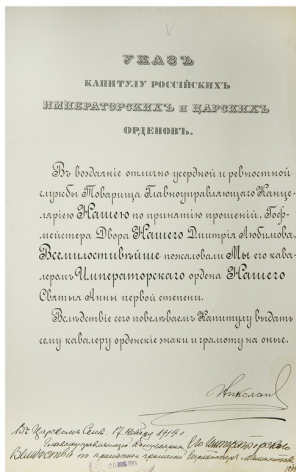 УКАЗЪ
КАПИТУЛУ РОССІЙСКИХЪ
ИМПЕРАТОРСКИХЪ И ЦАРСКИХЪ
ОРДЕНОВЪ.
Въ воздаяніе отлично усердной и ревностной
службы Товарища Главноуправляющаго Канце-
ляріею Нашею по принятію прошеній, Гоф-
мейстера Двора Нашего Дмитрія Любимова,
Всемилостивѣйше пожаловали Мы его кава-
леромъ Императорскаго ордена Нашего
Святыя Анны первой степени.
Вслѣдствіе сего повелѣваемъ Капитулу выдать
сему кавалеру орденскіе знаки и грамоту на оные.
Николай
Въ Царскомъ Селѣ. 17 Ноября
Главноуправляющій Канцеляріею Его Императорскаго
Величества по принятію прошеній